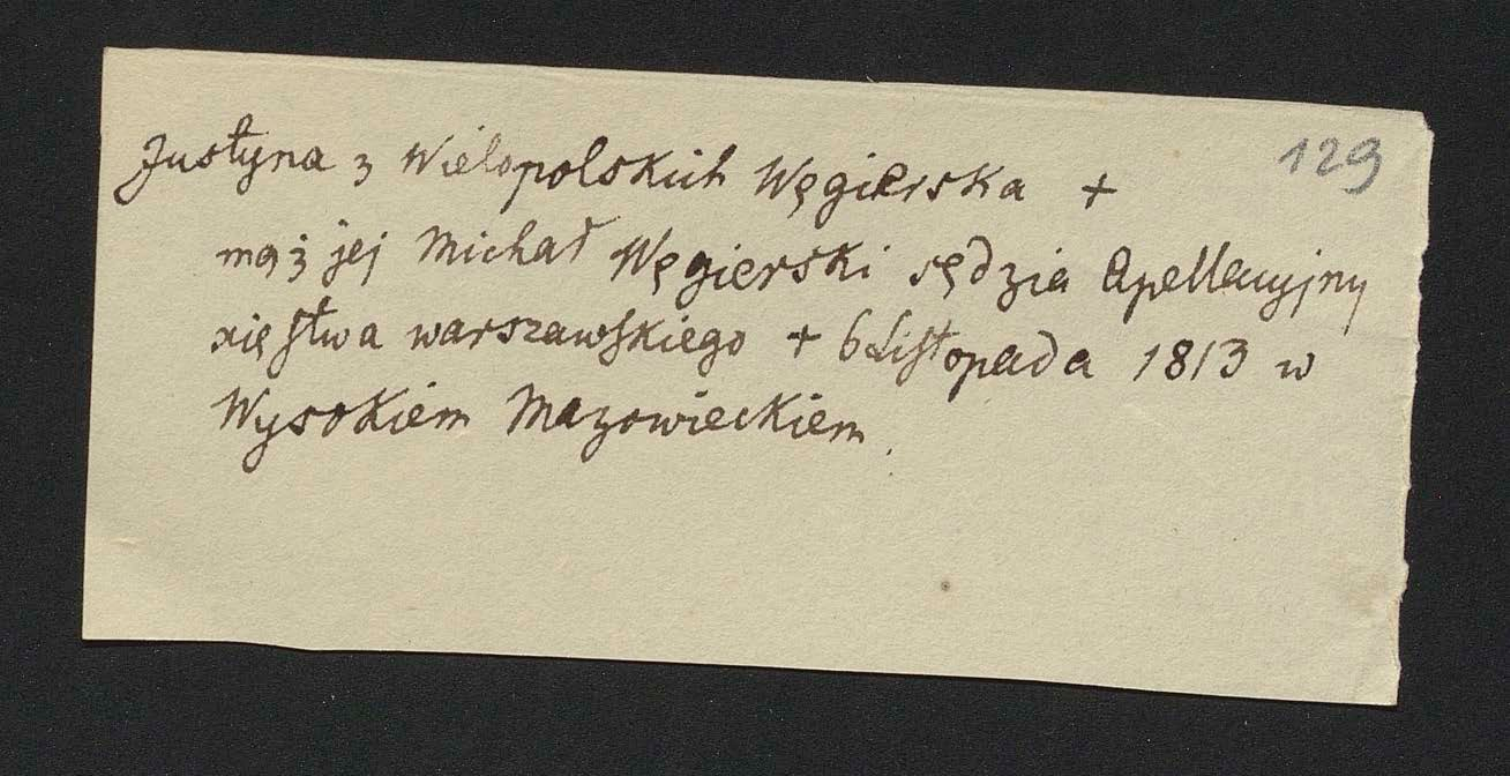 Justyna z Wielopolskich Węgierska +
129
mąż jej Michał Węgierski sędzia Apellacyjny
xięstwa warszawskiego + 6 Listopada 1813 w
Wysokiem Mazowieckiem.